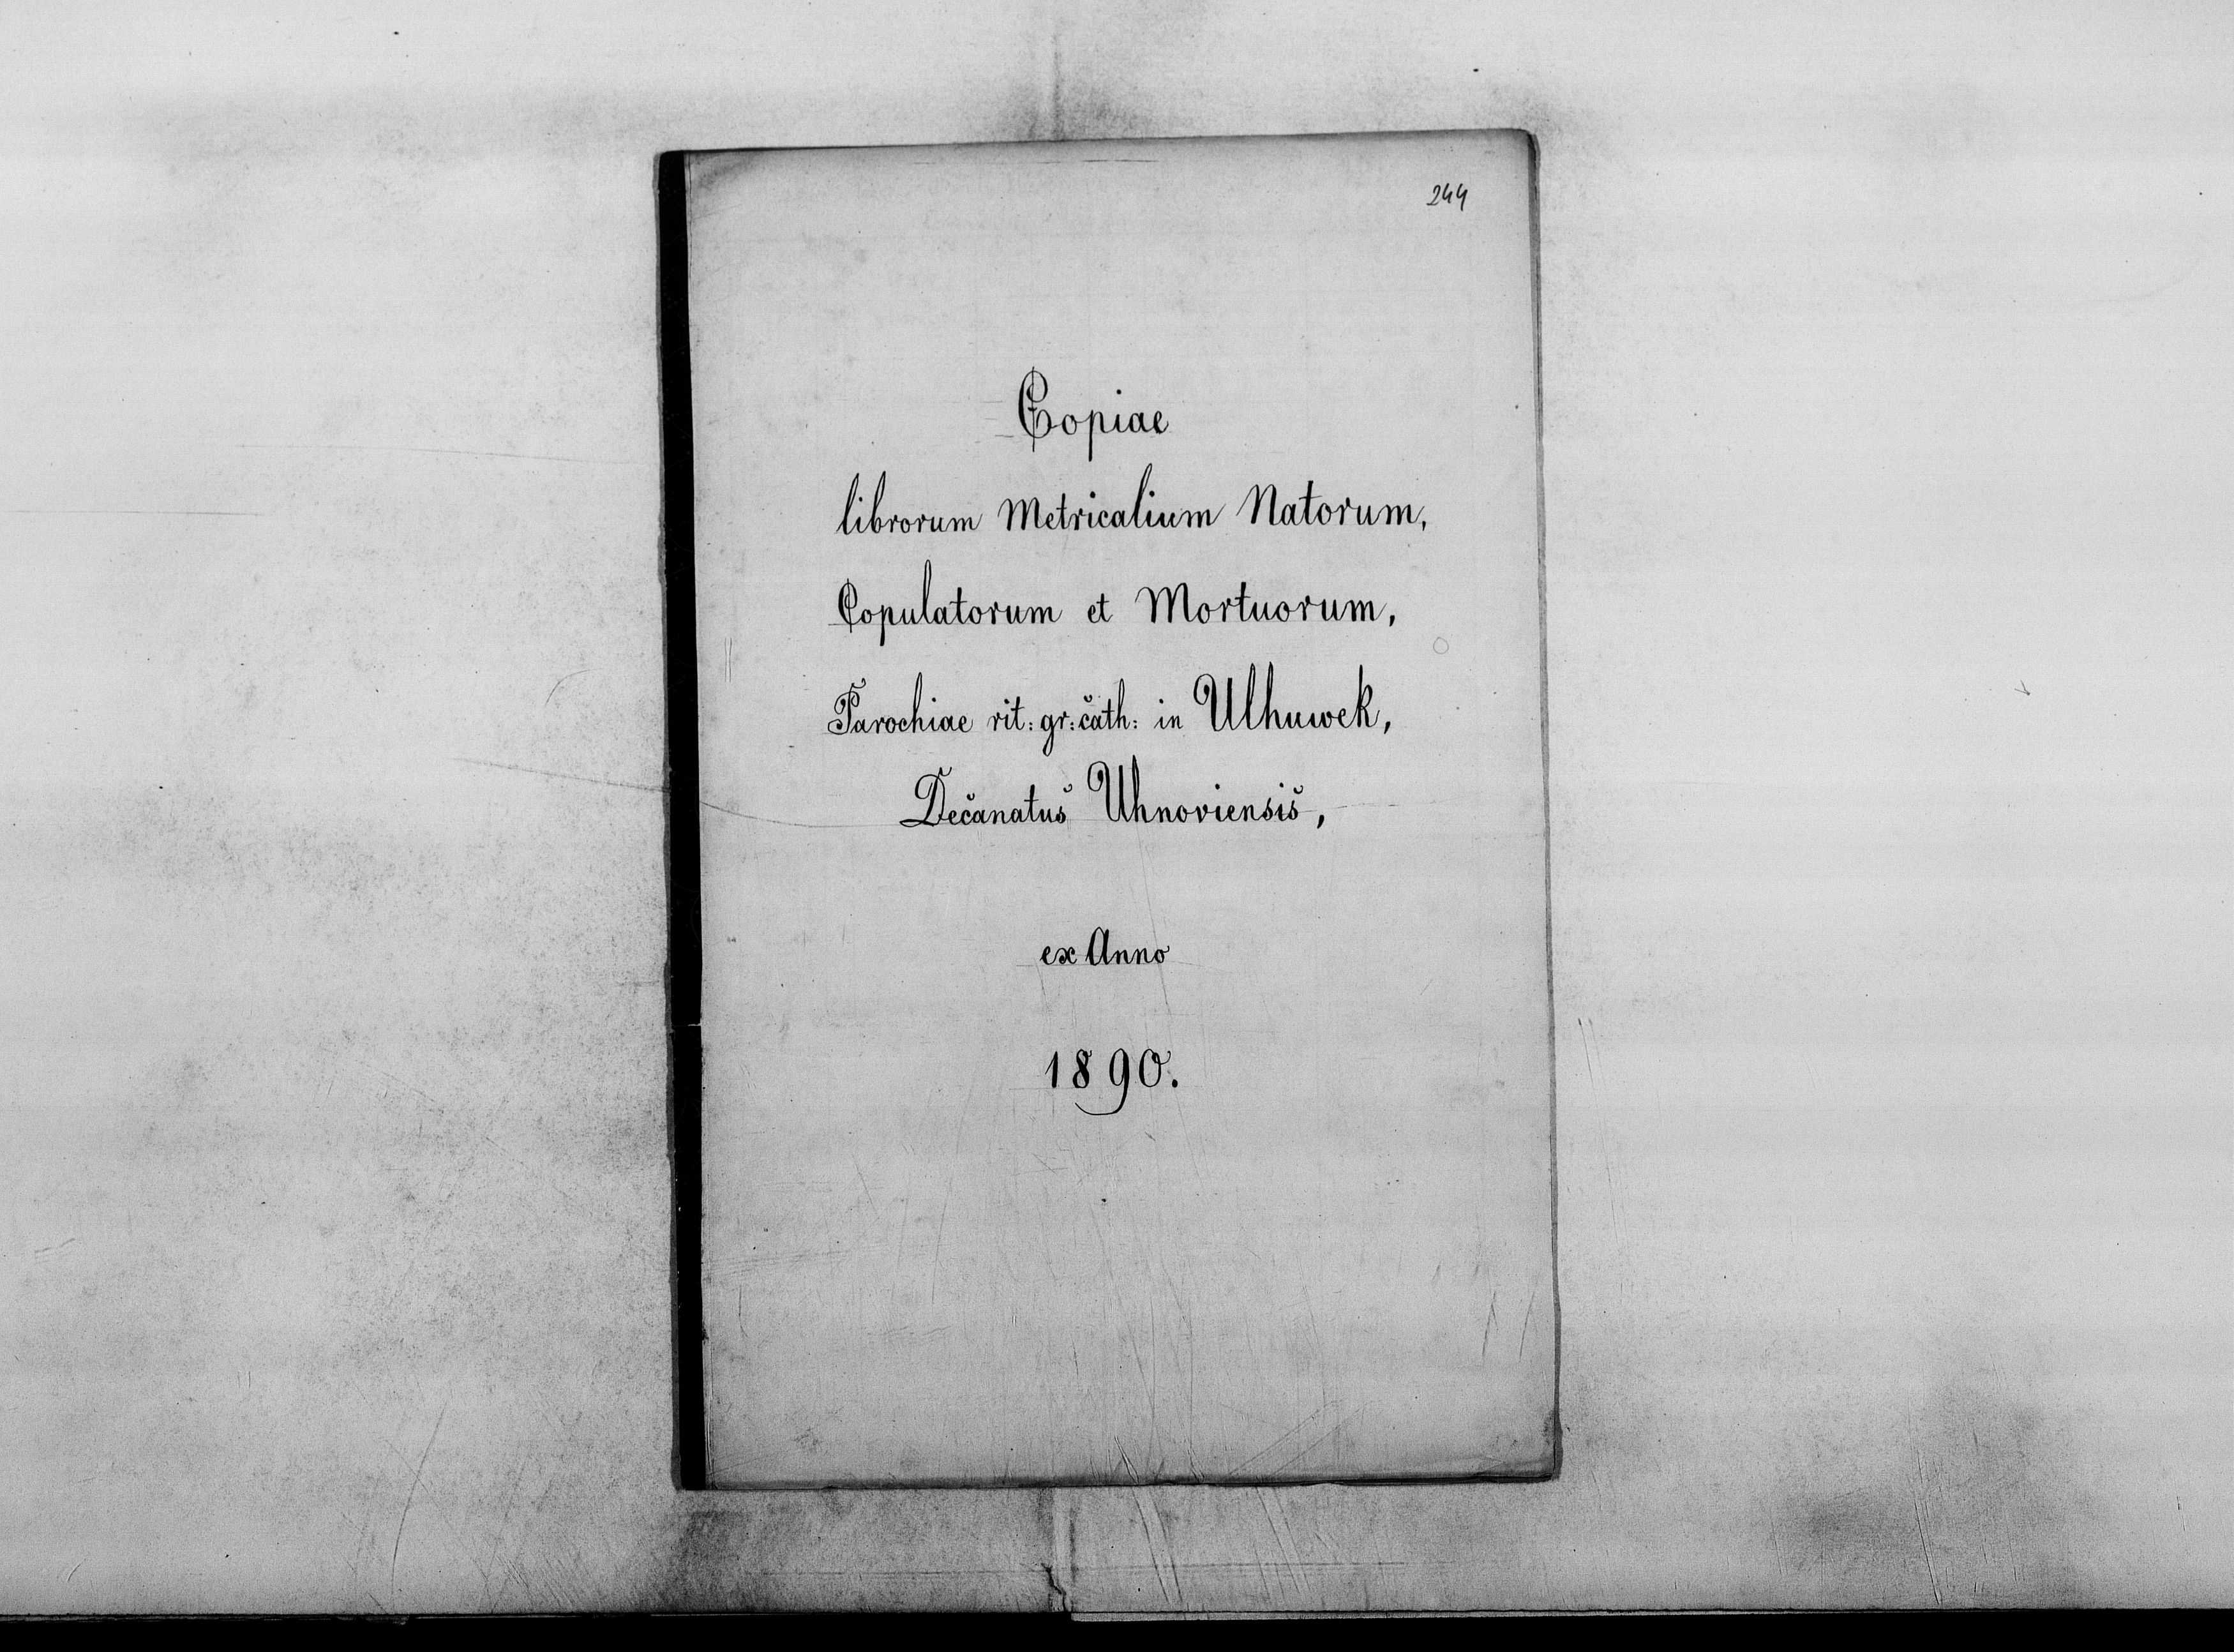 244
Copiae
librorum Metricalium Natorum,
Copulatorum et Mortuorum,
Parochiae rit: gr: cath: in Ulhuwek,
Decanatus Uhnoviensis,
ex Anno
1890.